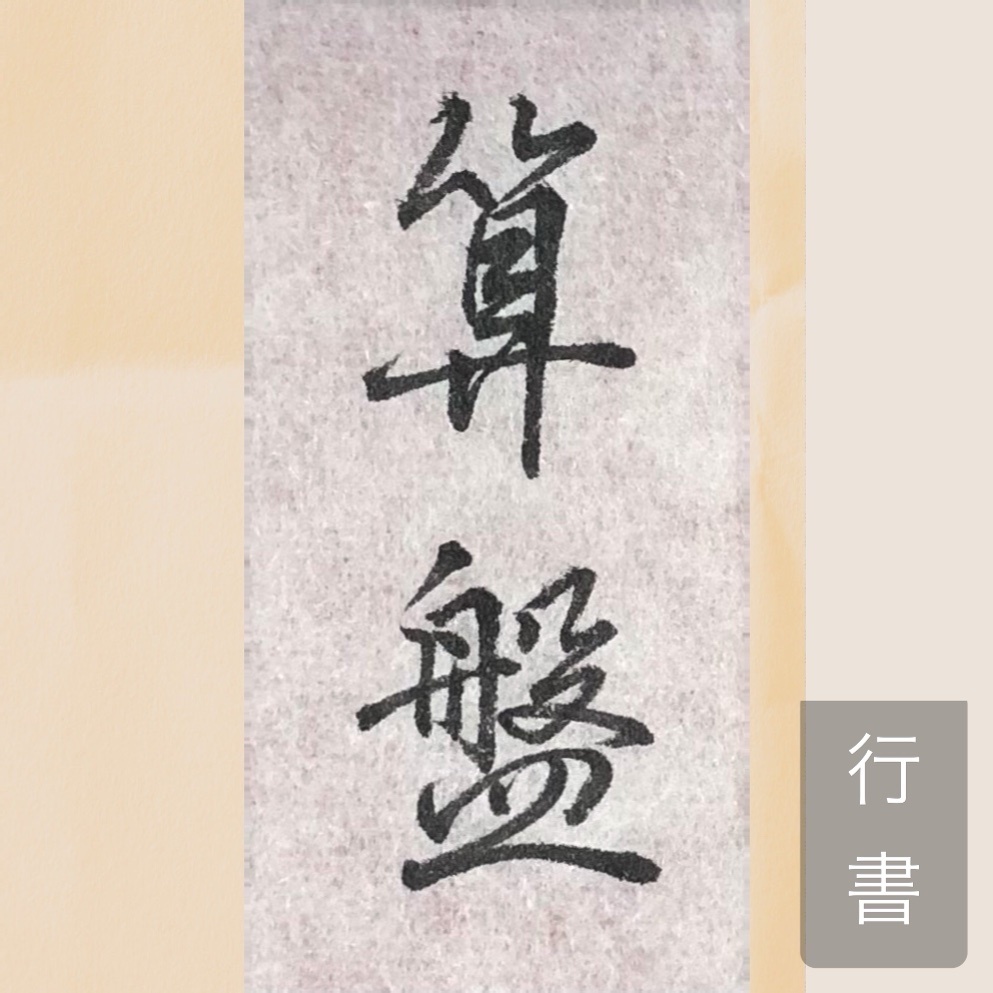 算盤
行書